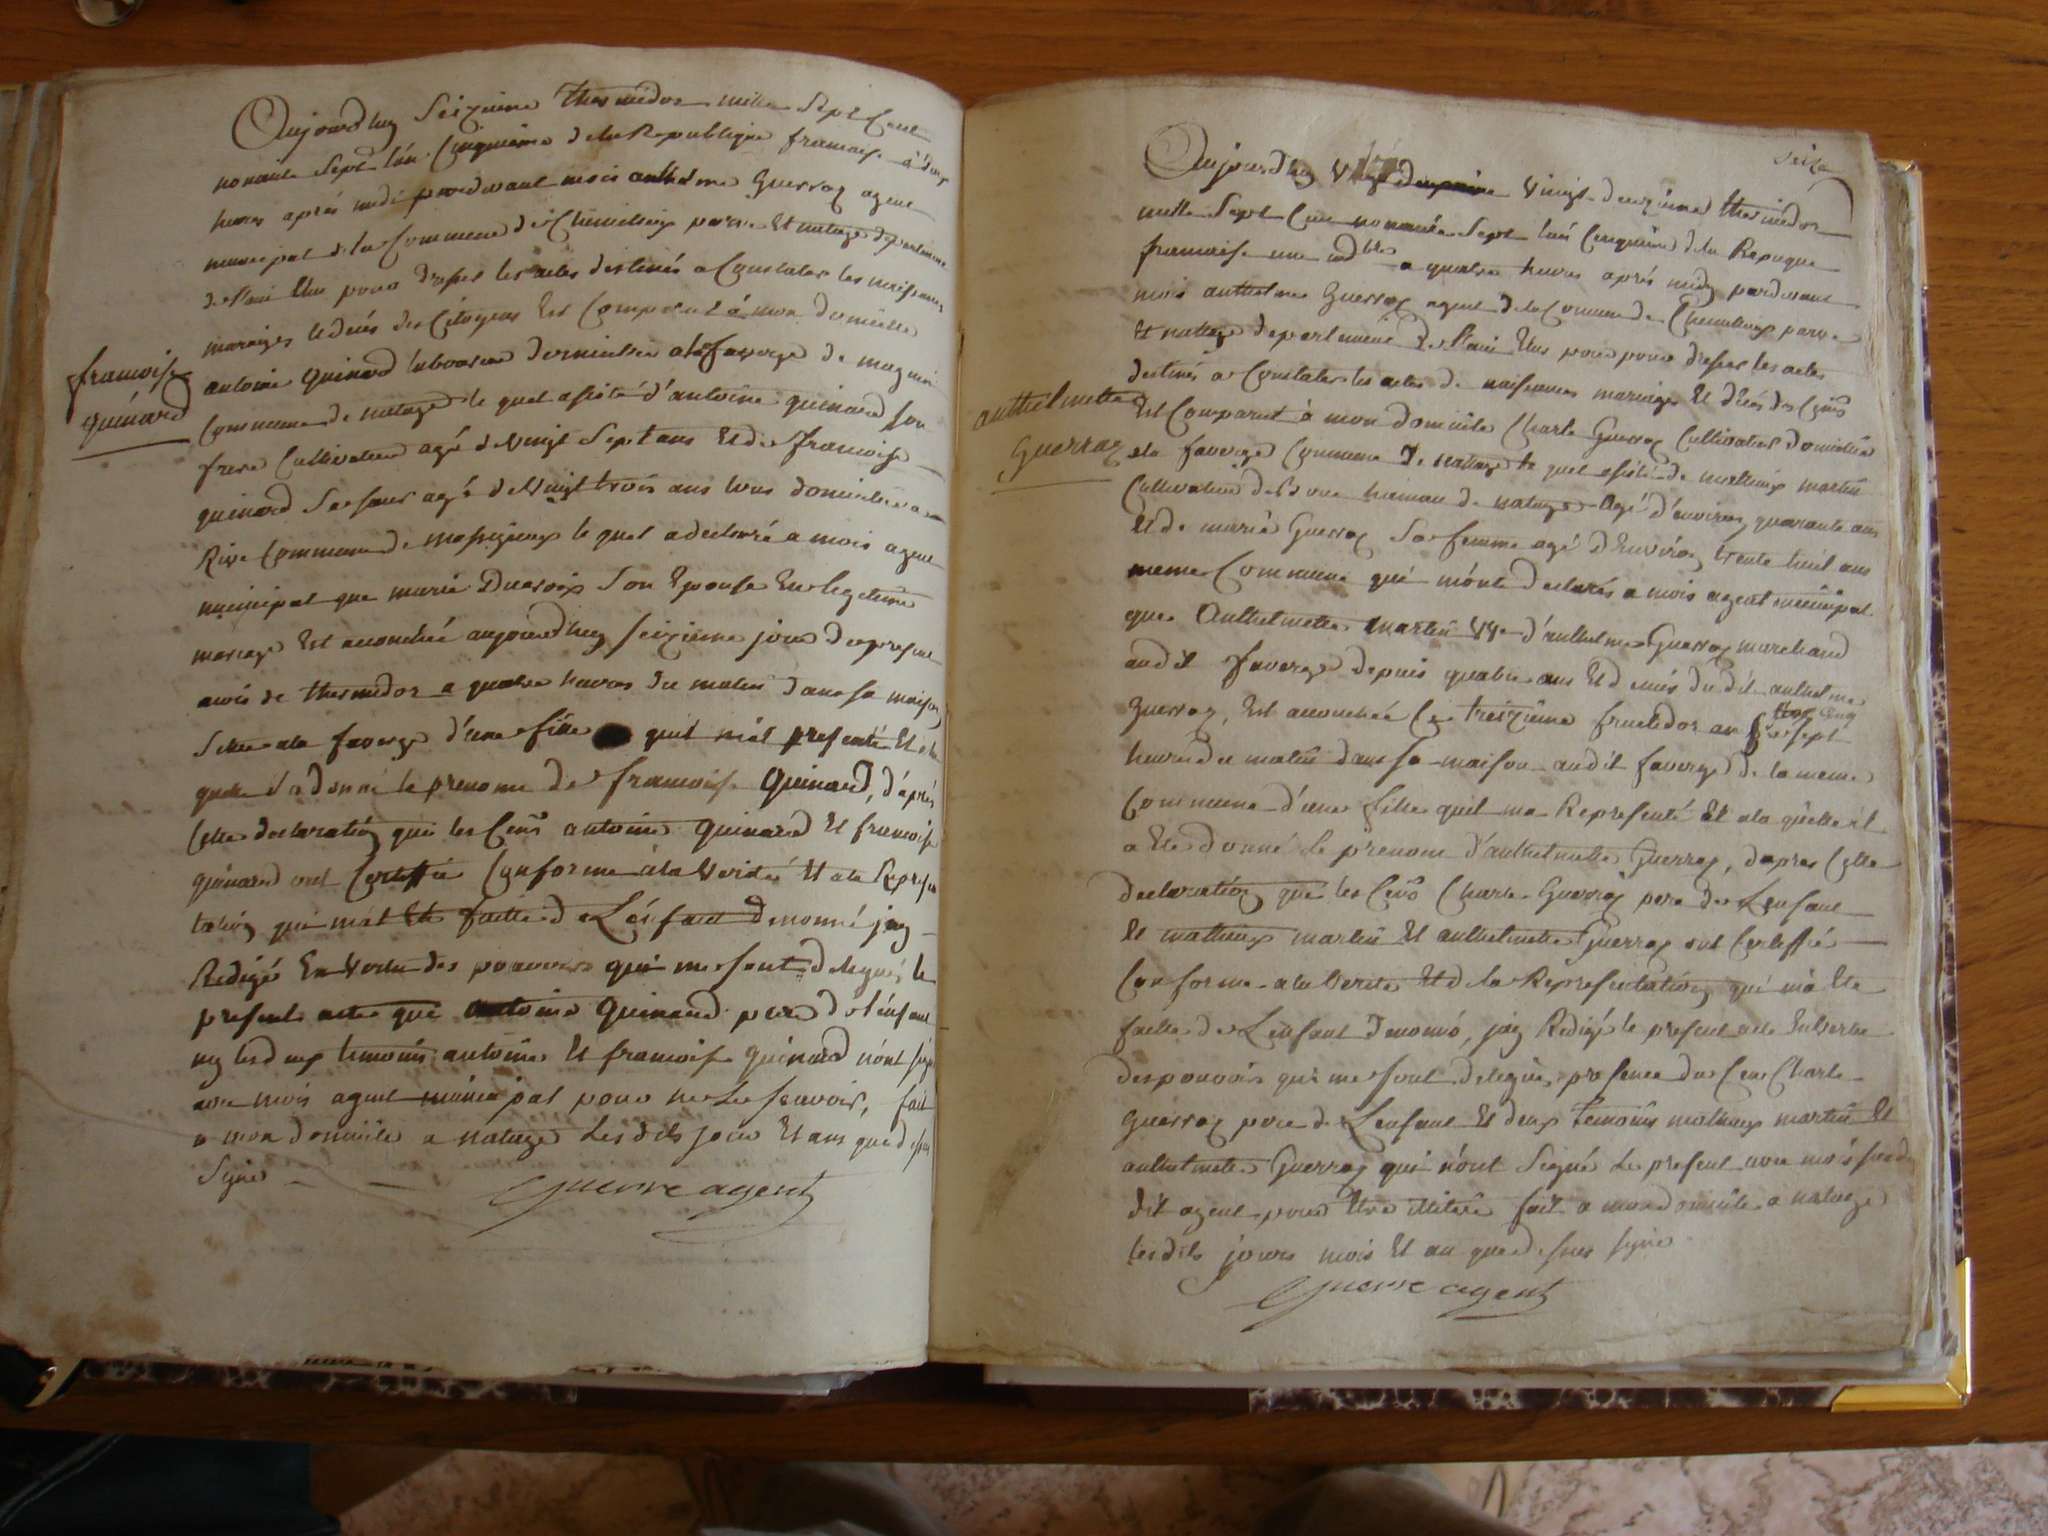 Aujourdhuy Seizieme thermidor mille Sept Cent
nonante Sept lán Cinquieme dela Republique francaise à deux
heures aprés midi pardevant mois anthelme Guerraz agent
municipal de la Commune de Chemilieux parve Et natage departement
de l'ain Elus pour dresser les actes destinés a Constater les naissances
mariages Et decés des Citoyens Est Comparut à mon domicille
antoine quinard laboureur domicilié ala faverge de
francoise
quinard
Commune de natage le quel assisté d'antoine quinard son
frere Cultivateur agé de Vingt Sept ans Et de francoise
quinard Sa seur agé de Vingt trois ans tous domiciliés a
Rive Commune de massigneux le quel a declaré a mois agent
municipal que marie Ducroix Son Epouse En legitime
mariage Est accouchée aujourdhuy seizieme jour du present
mois de thermidor a quatre heures du matin dans sa maison
Scitue ala faverge d'une fille quil m'at presenté Et a la
quelle il a donné le prenom de francoise quinard, d'aprés
Cette declaration que les Cens antoine quinard Et francoise
quinard ont Certiffié Conforme ala Verité Et ala Represen
tation qui m'at Eté faitte de L'énfant denommé jay
Redigé En Vertu des pouvoirs qui me sont delegués le
present acte que antoine quinard pere de l'énfant
ny les deux temoins antoine Et francoise quinard n'ont signé
avec mois agent municipal pour ne Le scavoir, fait
a mon domicile a natage Les dits jour Et ans que dessus
Signé
Guerre agent
Seize
Aujourdhuy Vingt deuxieme thermidor
mille Sept Cent nonante Sept lán Cinquieme dela Repuque
francaise une indble a quatre heures aprés midy pardevant
mois anthelme Guerraz agent dela Commune de Chemilieux parve
Et natage departement de l'ain Elus pour dresser les actes
destinés a Constater les actes de naissances mariage Et décés des Cyens
anthelmette
Guerraz
Est Comparut à mon domicile Charle Guerraz Cultivateur domicilié
ala faverge Commune de natage le quel assisté de mathieux martin
Cultivateur hameau de natage Agé d'environ quarante ans
Et de marie Guerraz Sa femme agé d'Environ trente huit ans
meme Commune qui m'ont declarés a mois agent municipal
que Anthelmette martin d'anthelme Guerraz marchand
audit faverge depuis quatre ans Et decés dudit anthelme
Guerraz, Est accouchée Ce treizieme fructidor an Sept
heures du matin dans sa maison audit faverge de la meme
Commune d'une fille quil ma Representé Et ala quelle il
a Eté donné le prenom d'anthelmette Guerraz, dapres Cette
declaration que les Cens Charle Guerraz pere de Lenfant
Et mathieux martin Et anthelmette Guerraz ont Certiffié
Conforme ala Verite Et de la Representation qui m'a Eté
faitte de Lenfant denommé, jay Redigé le present acte En Vertu
des pouvois qui me sont delegués, presence du Cen Charle
Guerraz pere de Lenfant Et deux temoins mathieux martin Et
anthelmette Guerraz qui n'ont Signé Le present avec mois
dit agent pour Etre illiteré fait a mon domicile a natage
lesdits jours mois Et an que dessus signé
Guerre agent